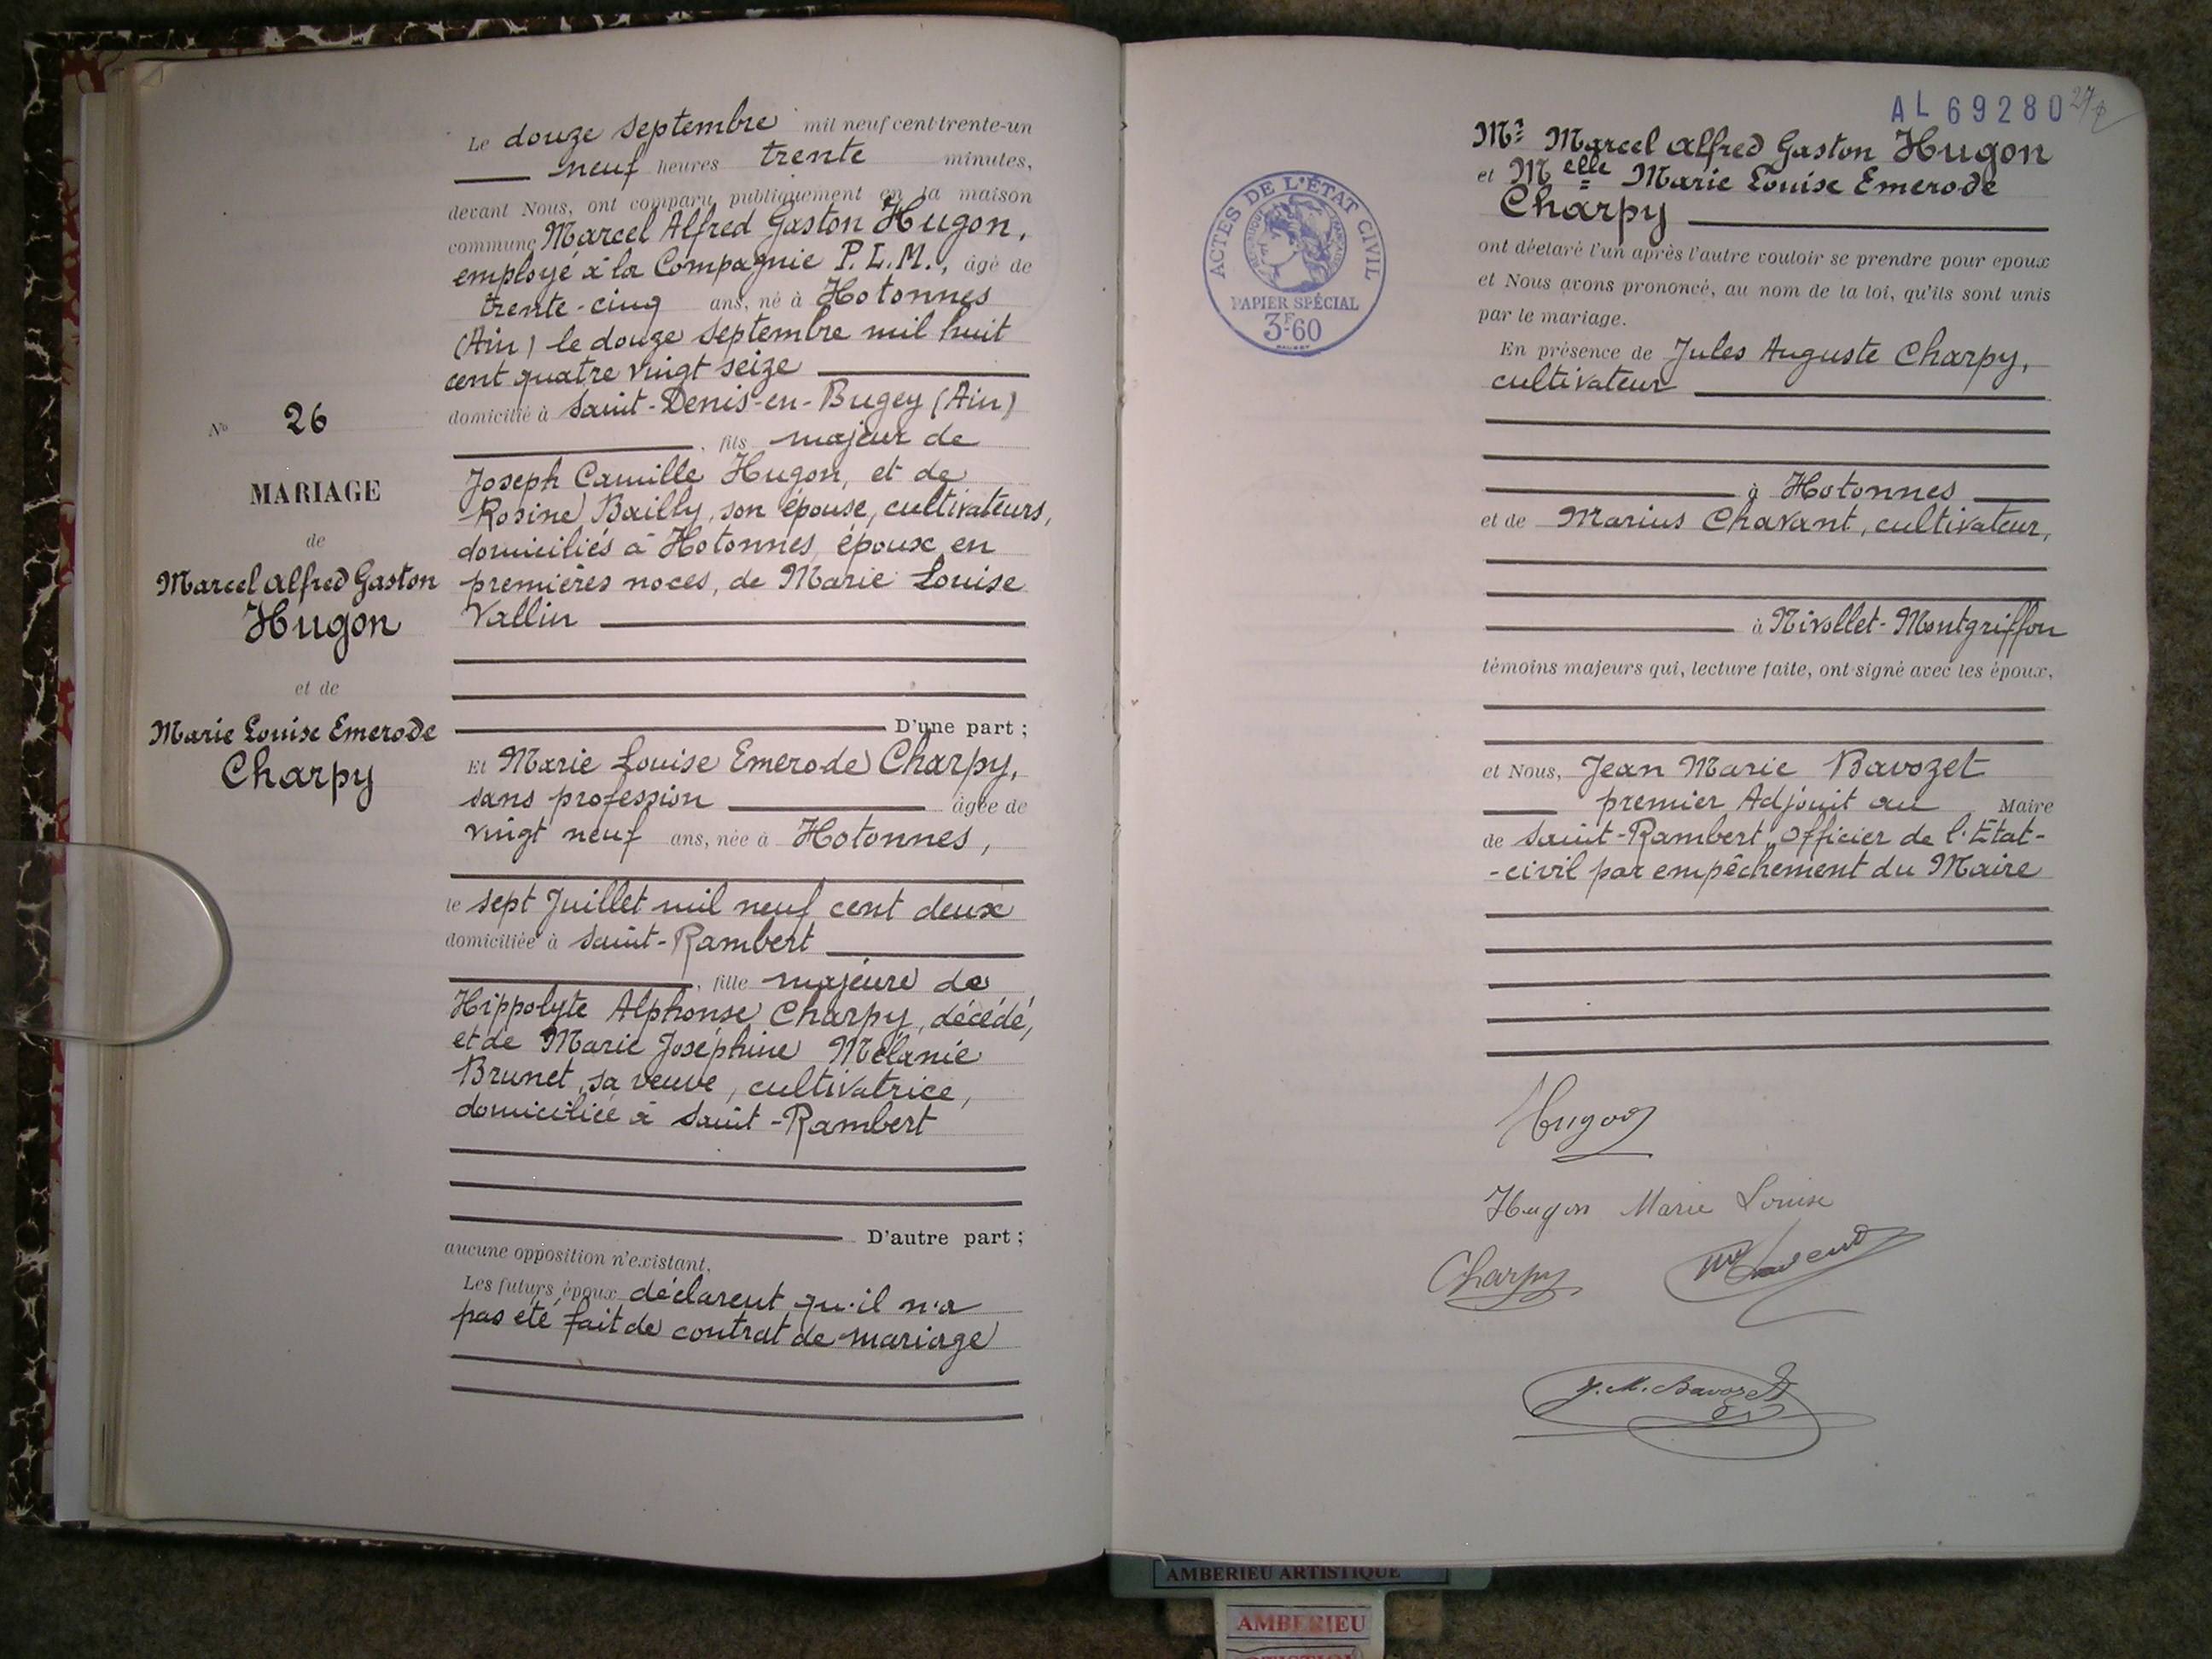 Le douze septembre mil neuf cent trente-un
neuf heures trente minutes,
devant Nous, ont comparu publiquement en la maison
commune Marcel Alfred Gaston Hugon,
employé à la Compagnie P.L.M., âgé de
trente-cinq ans, né à Hotonnes
(Ain) le douze septembre mil huit
cent quatre vingt seize
domicilié à Saint-Denis-en-Bugey (Ain)
, fils majeur de
Joseph Camille Hugon, et de
Rosine Bailly, son épouse, cultivateurs,
domiciliés à Hotonnes, époux en
premières noces, de Marie Louise
Vallin
D'une part ;
Et Marie Louise Emerode Charpy,
sans profession âgée de
vingt neuf ans, née à Hotonnes,
le sept Juillet mil neuf cent deux
domiciliée à Saint-Rambert
, fille majeure de
Hippolyte Alphonse Charpy, décédé,
et de Marie Joséphine Mélanie
Brunet, sa veuve, cultivatrice,
domiciliée à Saint-Rambert
D'autre part ;
aucune opposition n'existant.
Les futurs époux déclarent qu'il n'a
pas été fait de contrat de mariage
No 26
MARIAGE
de
Marcel Alfred Gaston
Hugon
et de
Marie Louise Emerode
Charpy
AL 69280
Mr Marcel Alfred Gaston Hugon
et Melle Marie Louise Emerode
Charpy
ont déclaré l'un après l'autre vouloir se prendre pour epoux
et Nous avons prononcé, au nom de la loi, qu'ils sont unis
par le mariage.
En présence de Jules Auguste Charpy,
cultivateur
à Hotonnes
et de Marius Chavant, cultivateur,
à Nivollet-Montgriffon
témoins majeurs qui, lecture faite, ont signé avec les époux,
et Nous, Jean Marie Bavozet
premier Adjoint au Maire
de Saint-Rambert, Officier de l'Etat-
-civil par empêchement du Maire
Hugon
Hugon Marie Louise
Charpy
J. M. Bavozet
ACTES DE L'ÉTAT CIVIL
RÉPUBLIQUE FRANÇAISE
PAPIER SPÉCIAL
3F60
AMBERIEU ARTISTIQUE
AMBERIEU